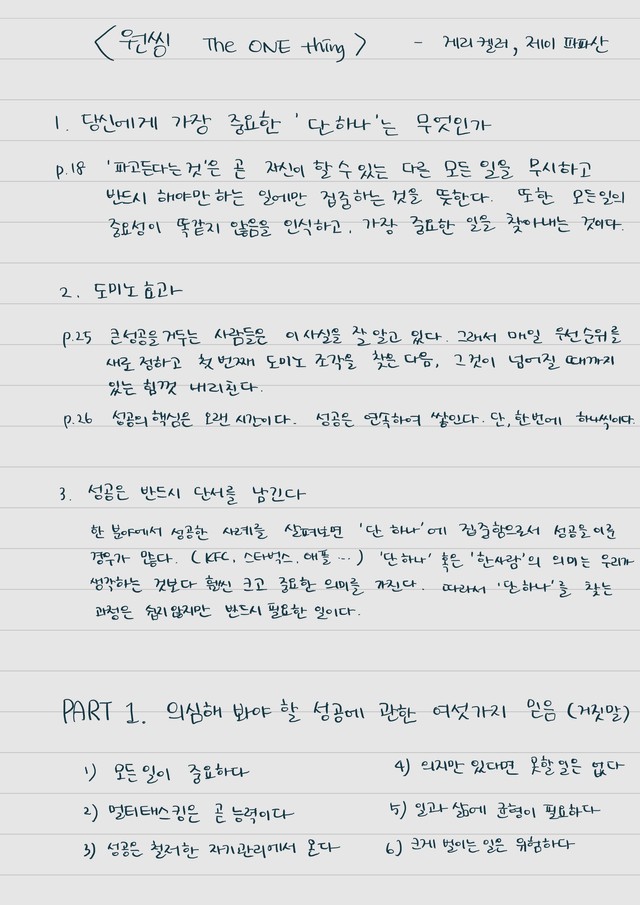 <원씽 The ONE thing> - 게리 켈러, 제이 파파산
1. 당신에게 가장 중요한 '단 하나'는 무엇인가
p.18 '파고든다는 것'은 곧 자신이 할 수 있는 다른 모든 일을 무시하고
반드시 해야만 하는 일에만 집중하는 것을 뜻한다. 또한 모든일의
중요성이 똑같지 않음을 인식하고, 가장 중요한 일을 찾아내는 것이다.
2. 도미노 효과
p.25 큰 성공을 거두는 사람들은 이 사실을 잘 알고 있다. 그래서 매일 우선순위를
새로 정하고 첫 번째 도미노 조각을 찾은 다음, 그것이 넘어질 때까지
있는 힘껏 내리친다.
p.26 성공의 핵심은 오랜 시간이다. 성공은 연속하여 쌓인다. 단, 한번에 하나씩이다.
3. 성공은 반드시 단서를 남긴다
한 분야에서 성공한 사례를 살펴보면 '단 하나'에 집중함으로서 성공을 이룬
경우가 많다. (KFC, 스타벅스, 애플 …) '단 하나' 혹은 '한사람'의 의미는 우리가
생각하는 것보다 훨씬 크고 중요한 의미를 가진다. 따라서 '단 하나'를 찾는
과정은 쉽지 않지만 반드시 필요한 일이다.
PART 1. 의심해 봐야 할 성공에 관한 여섯가지 믿음 (거짓말)
1) 모든 일이 중요하다
2) 멀티태스킹은 곧 능력이다
3) 성공은 철저한 자기관리에서 온다
4) 의지만 있다면 못할 일은 없다
5) 일과 삶에 균형이 필요하다
6) 크게 벌이는 일은 위험하다